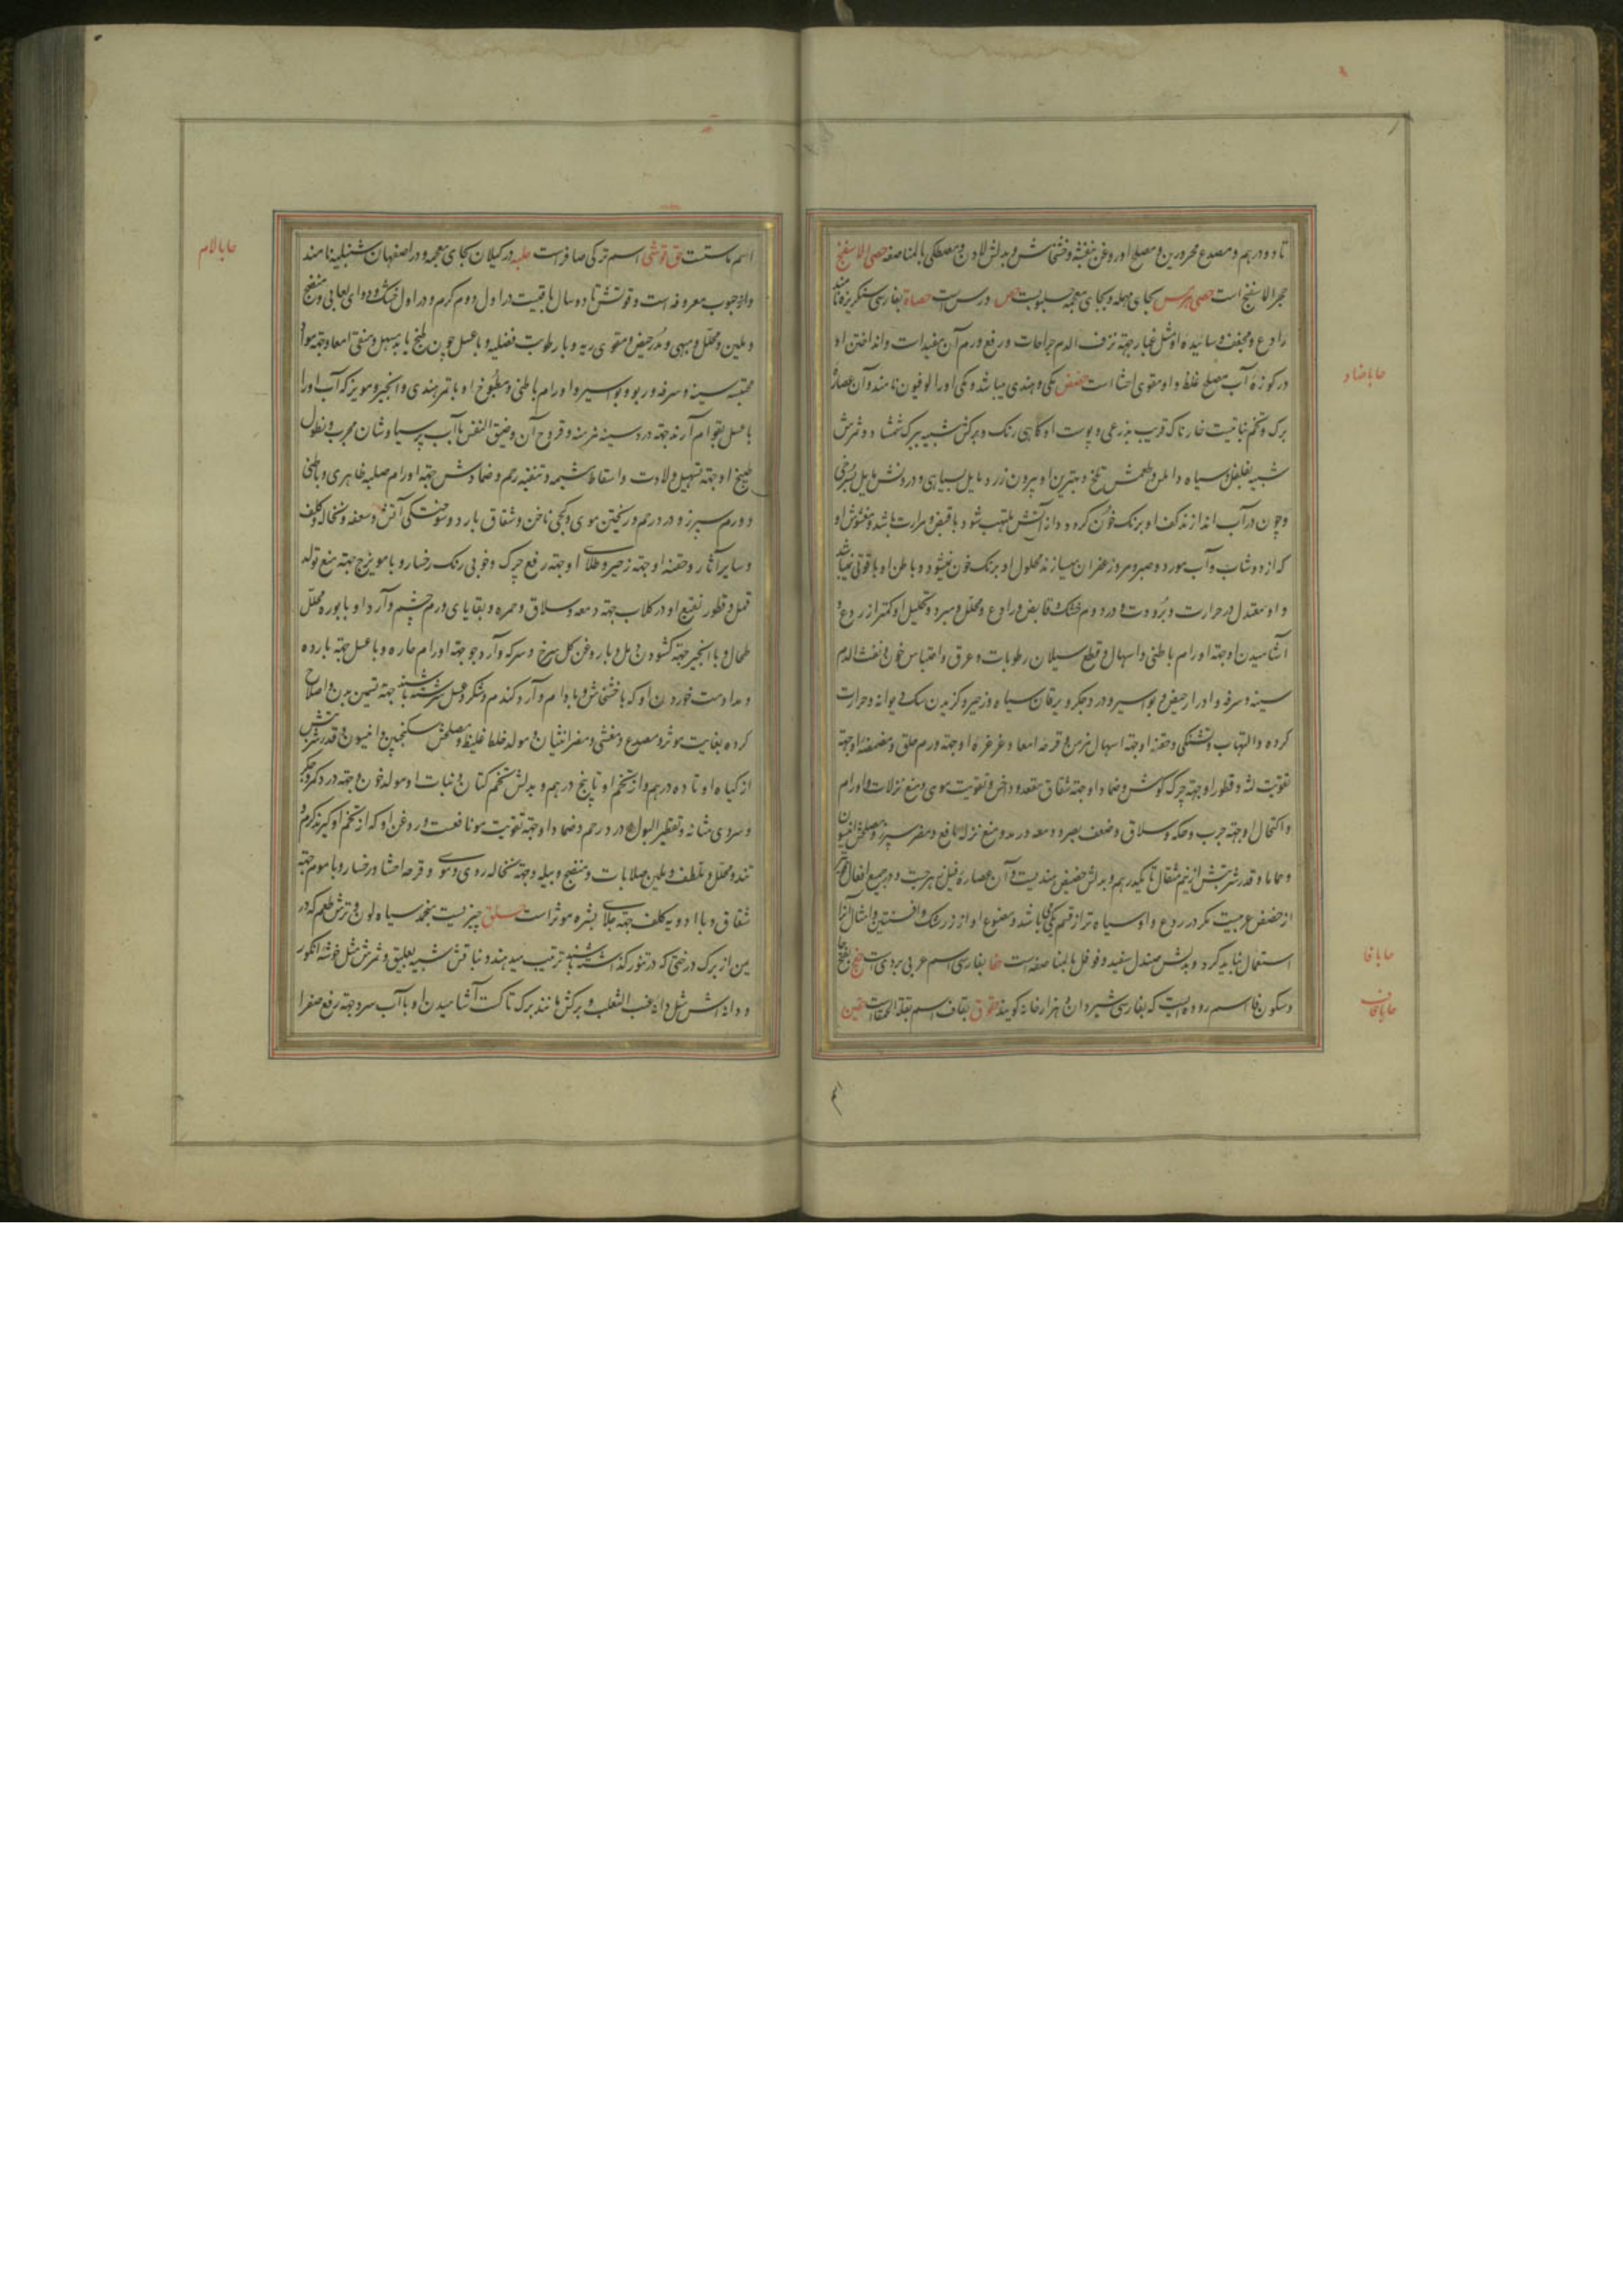 تا دو درهم و مصدع محرورین و مصلح او روغن بنفشه و خشخاش و بدلش لادن و مصطکی بالمناصفه حصی الاسفنج
حجر الاسفنج است حصی بجای مهمله و بجای معجمه جلبوبست حص ورس است حصاة بفارسی سنکریزه نامند
رادع و مجفف و سائیده او مثل غبار جهته نزف الدم جراحات و رفع ورم آن مفید است و انداختن او
در کوزه آب مصلح غلظ و او مقوی احشا است حضض مکی و هندی میباشد و مکی او را لوفیون نامند و آن عصاره
برک و تخم نباتیست خارناک قریب بذرعی و پوست او کاهی رنک و برکش شبیه ببرک شمشاد و ثمرش
شبیه بفلفل و سیاه و املس و طعمش تلخ و بهترین او بیرون زرد مایل بسیاهی و درونش مایل بسرخی
و چون در آب اندازند کف او برنک خون کردد و از آتش ملتهب شود با قبض و مرارت باشد و مغشوش او
که از دوشاب و آب مورد و صبر و مر و زعفران میسازند محلول او برنک خون نمیشود و باطن او یاقوتی نمیباشد
و او معتدل در حرارت و برودت و در دوم خشک و قابض و رادع و محلل و مبرد و تحلیل او کمتر از ردع و
آشامیدن او جهته اورام باطنی و اسهال و قطع سیلان رطوبات و عرق و احتباس خون و نفث الدم
سینه و سرفه و ادرار حیض و بواسیر و درد جکر و یرقان سیاه و زحیر و کزیدن سک دیوانه و حرارت
کرده و التهاب و تشنکی و حقنه او جهته اسهال مزمن و قرحه امعا و غرغره او جهته ورم حلق و مضمضه او جهته
تقویت لثه و قطور او جهته چرک کوش و ضماد او جهته شقاق مقعد و داخس و تقویت موی و منع نزلات و اورام
و اکتحال او جهته جرب و حکه و سلاق و ضعف بصر و دمعه و رمد و منع نزله نافع و مضر سپرز و مصلحش انیسون
و ماما و قدر شربتش از نیم مثقال تا یکدرهم و بدلش حضیض هندیست و آن عصاره فیل زهرجست و در جمیع افعال
از حضض عربیست مکر در ردع و او سیاه تر از قسم مکی باشد و مصنوع او از زرشک و افسنتین و امثال آنرا
استعمال نباید کرد و بدلش صندل سفید و فوفل بالمناصفه است حفا بفارسی اسم عربی بردی است بفتح حا
و سکون فا اسم روده ایست که بفارسی شیردان و هزارخانه کویند حقوق بقاف اسم بقلة الحمقا است حقین
حا با ضاد
حا با فا
حا با قاف
اسم ماستست حق قوشی اسم ترکی صافر است حلبه در کیلان بجای معجمه و در اصفهان شنبلیله نامند
و از حبوب معروفه است و قوتش تا دو سال باقیست در اول دوم کرم و در اول خشک و دوای لعابی و منضج
و ملین و محلل و مبهی و مدر حیض و مقوی ریه و با رطوبت فضلیه و با عسل چون طبخ یابد مسهل و منقی امعا و جهته مواد
محتبسه سینه و سرفه و ربو و بواسیر و اورام باطنی و مطبوخ او با تمر هندی و انجیر و مویز که آب او را
با عسل بقوام آرند جهته درد سینه مزمنه و قروح آن و ضیق النفس با آب پرسیاوشان مجرب و نطول
طبیخ او جهته تسهیل ولادت و اسقاط مشیمه و تنقیه رحم و ضمادش جهته اورام صلبه ظاهری و باطنی
و ورم سپرز و درد رحم و ریختن موی و کجی ناخن و شقاق بارد و سوختکی آتش و سعفه و نخاله و کلف
و سایر آثار و حقنه او جهته زحیر و طلای او جهته رفع چرک و خوبی رنک رخسار و با مویزج جهته منع تولد
قمل و قطور نقیع او در کلاب جهته دمعه و سلاق و حمره و بقایای ورم چشم و آرد او با بوره محلل
طحال و با انجیر جهته کشودن دمل و با روغن کل سرخ و سرکه و آرد جو جهته اورام حاره و با عسل جهته بارده
و مداومت خوردن او که با خشخاش و بادام و آرد کندم و شکر و عسل سرشته باشند جهته تسمین بدن و اصلاح
کرده بغایت موثر و مصدع و مغثی و مضر انثیان و مولد خلط غلیظ و مصلحش سکنجبین و انیسون و قدر شربتش
از کیاه او تا ده درهم و از تخم او تا پنج درهم و بدلش تخم کتان و نبات او مولد خون و جهته درد کمر و جکر
و سردی مثانه و تقطیر البول و درد رحم و ضماد او جهته تقویت مو نافعست و روغن او که از تخم او کیرند کرم و
تند و محلل و ملطف و ملین صلابات و منضج دبیله و جهته نخاله روی و موی و قرحه احشا و رخسار و با موم جهته
شقاق و با ادویه کلف جهته جلای بشره موثر است حلق چیزیست منجمد سیاه لون و ترش طعم که در
یمن از برک درختی که در تنور کذاشته باشند ترتیب میدهند و نباتش شبیه بعلیق و ثمرش مثل خوشه انکور
و دانه اش مثل دانه عنب الثعلب و برکش مانند برک تاکست آشامیدن او با آب سرد جهته رفع صفرا
حا با لام